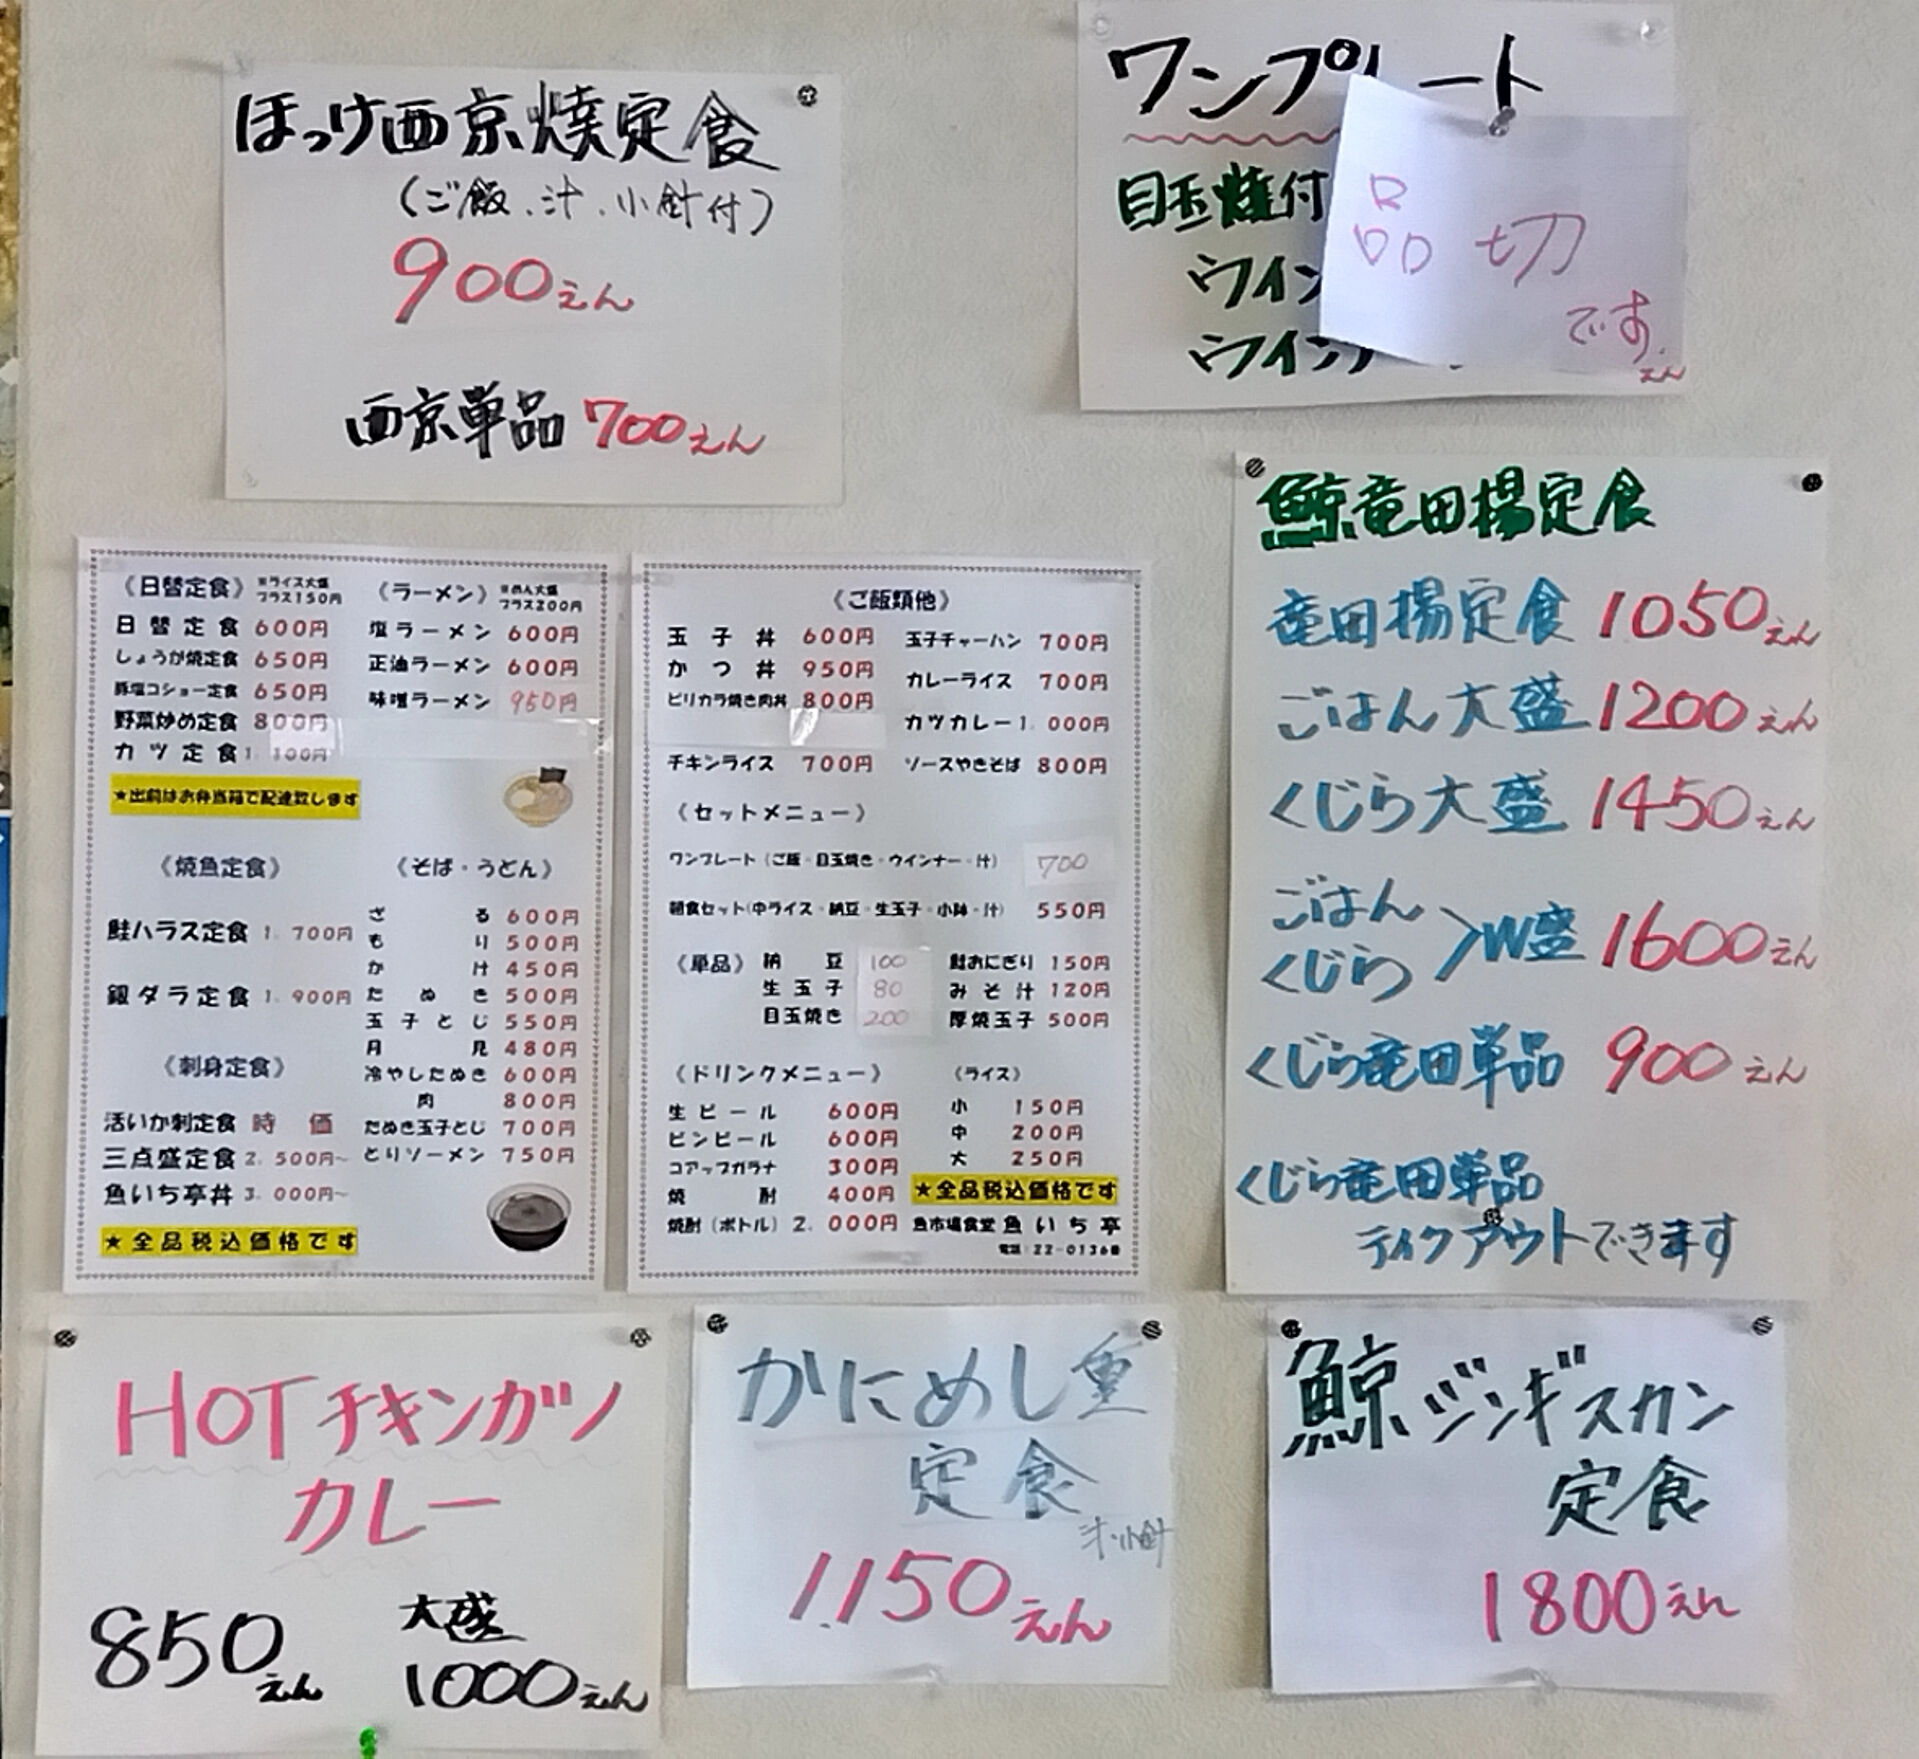 ほっけ西京焼定食
(ご飯、汁、小針付)
900えん
西京単品 700えん
ワンプレート
目玉焼付
ウイン
ウインナ
品切
です
えん
《日替定食》 ※ライス大盛 プラス150円
日替定食 600円
しょうが焼定食 650円
豚塩コショー定食 650円
野菜炒め定食 800円
カツ定食 1,100円
★出前はお弁当箱で配達致します
《ラーメン》 ※めん大盛 プラス200円
塩ラーメン 600円
正油ラーメン 600円
味噌ラーメン 950円
《焼魚定食》
鮭ハラス定食 1,700円
銀ダラ定食 1,900円
《刺身定食》
活いか刺定食 時価
三点盛定食 2,500円~
魚いち亭丼 3,000円~
★全品税込価格です
《そば・うどん》
ざる 600円
もり 500円
かけ 450円
たぬき 500円
玉子とじ 550円
月見 480円
冷やしたぬき 600円
肉 800円
たぬき玉子とじ 700円
とりソーメン 750円
《ご飯類他》
玉子丼 600円
かつ丼 950円
ピリカラ焼き肉丼 800円
チキンライス 700円
玉子チャーハン 700円
カレーライス 700円
カツカレー 1,000円
ソースやきそば 800円
《セットメニュー》
ワンプレート(ご飯・目玉焼き・ウインナー・汁) 700
朝食セット(中ライス・納豆・生玉子・小鉢・汁) 550円
《単品》
納豆 100
生玉子 80
目玉焼き 200
鮭おにぎり 150円
みそ汁 120円
厚焼玉子 500円
《ドリンクメニュー》
生ビール 600円
ビンビール 600円
コアップガラナ 300円
焼酎 400円
焼酎(ボトル) 2,000円
《ライス》
小 150円
中 200円
大 250円
★全品税込価格です
魚市場食堂 魚いち亭
電話:22-0136番
鯨竜田揚定食
竜田揚定食 1050えん
ごはん大盛 1200えん
くじら大盛 1450えん
ごはん
くじら >W盛 1600えん
くじら竜田単品 900えん
くじら竜田単品
テイクアウトできます
HOTチキンカツ
カレー
850えん
大盛
1000えん
かにめし重
定食
汁・小針
1,150えん
鯨ジンギスカン
定食
1800えん